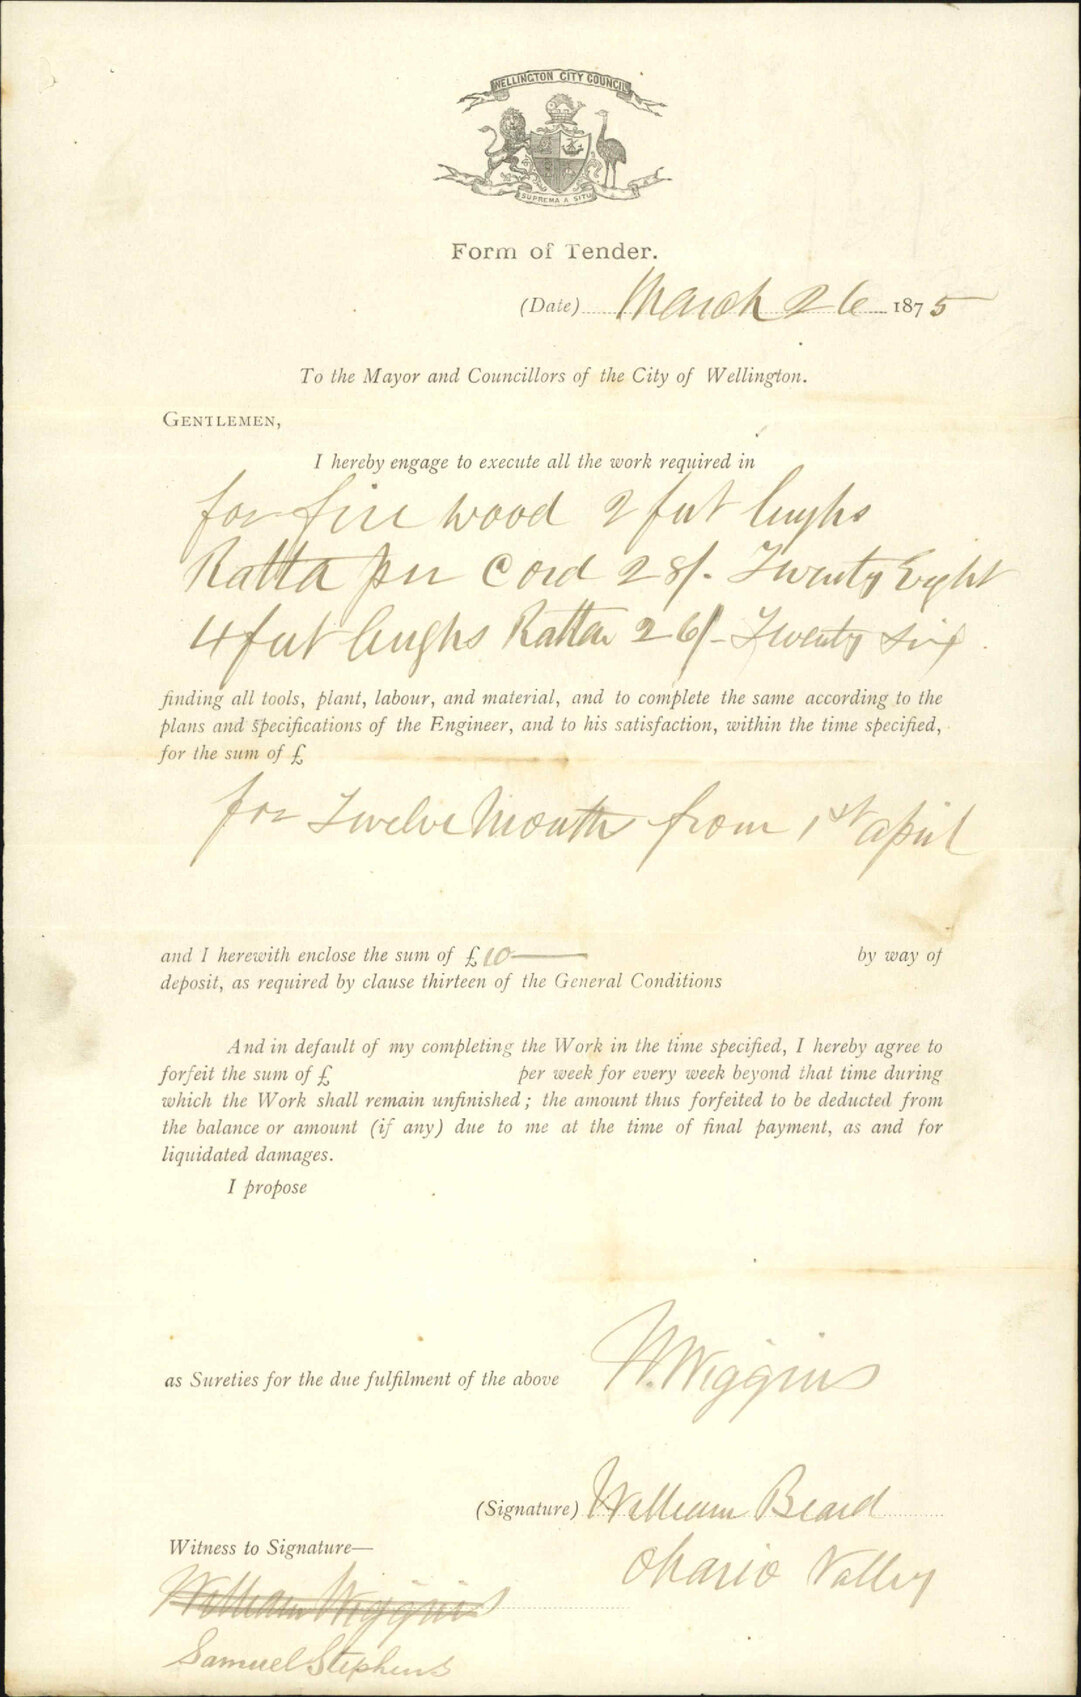 WELLINGTON CITY COUNCIL
SUPREMA A SITU
Form of Tender.
(Date) March 26 1875
To the Mayor and Councillors of the City of Wellington.
GENTLEMEN,
I hereby engage to execute all the work required in
for fire wood 2 feet lenghs
Ratta per Cord 28/- Twenty Eight
4 feet lenghs Ratta 26/- Twenty Six
finding all tools, plant, labour, and material, and to complete the same according to the
plans and specifications of the Engineer, and to his satisfaction, within the time specified,
for the sum of £
for Twelve Months from 1st april
and I herewith enclose the sum of £10 by way of
deposit, as required by clause thirteen of the General Conditions
And in default of my completing the Work in the time specified, I hereby agree to
forfeit the sum of £ per week for every week beyond that time during
which the Work shall remain unfinished; the amount thus forfeited to be deducted from
the balance or amount (if any) due to me at the time of final payment, as and for
liquidated damages.
I propose
W. Wiggins
as Sureties for the due fulfilment of the above
(Signature) William Beard
Ohario Valley
Witness to Signature—
William Wiggins
Samuel Stephens